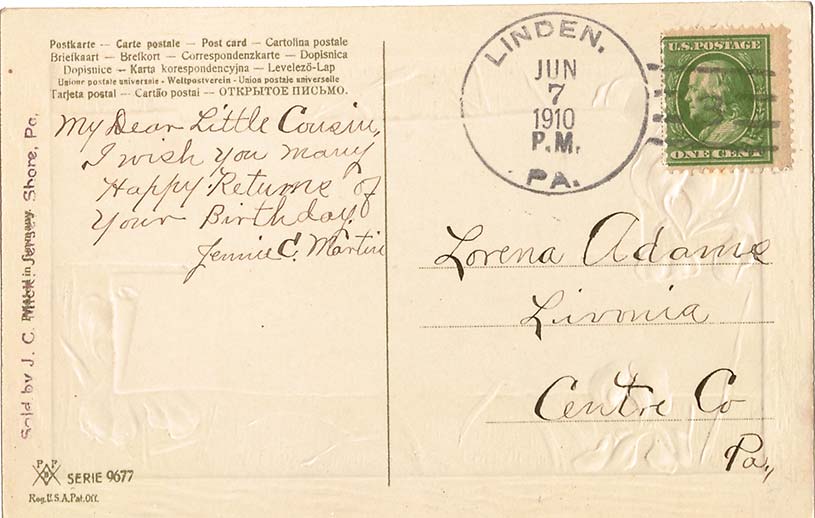 Postkarte — Carte postale — Post card — Cartolina postale
Briefkaart — Brefkort — Correspondenzkarte — Dopisnica
Dopisnice — Karta korespondencyjna — Levelező-Lap
Unione postale universale - Weltpostverein - Union postale universelle
Tarjeta postal — Cartão postal — ОТКРЫТОЕ ПИСЬМО.
My Dear Little Cousin,
I wish you many
Happy Returns of
Your Birthday
Jennie C. Martin
LINDEN.
JUN
7
1910
P.M.
PA.
U.S. POSTAGE
ONE CENT
Lorena Adams
Livonia
Centre Co
Pa,
Sold by J. C. Shore, Pa.
in Germany
PFB
SERIE 9677
Reg. U.S.A. Pat. Off.